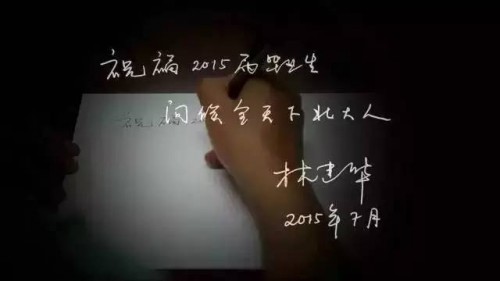 祝福2015届毕业生
问候全天下北大人
林建华
2015年7月
祝福2